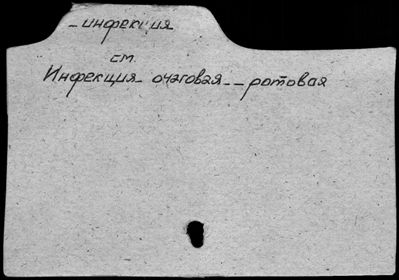 –инфекция
см.
Инфекция очаговая – – ротовая